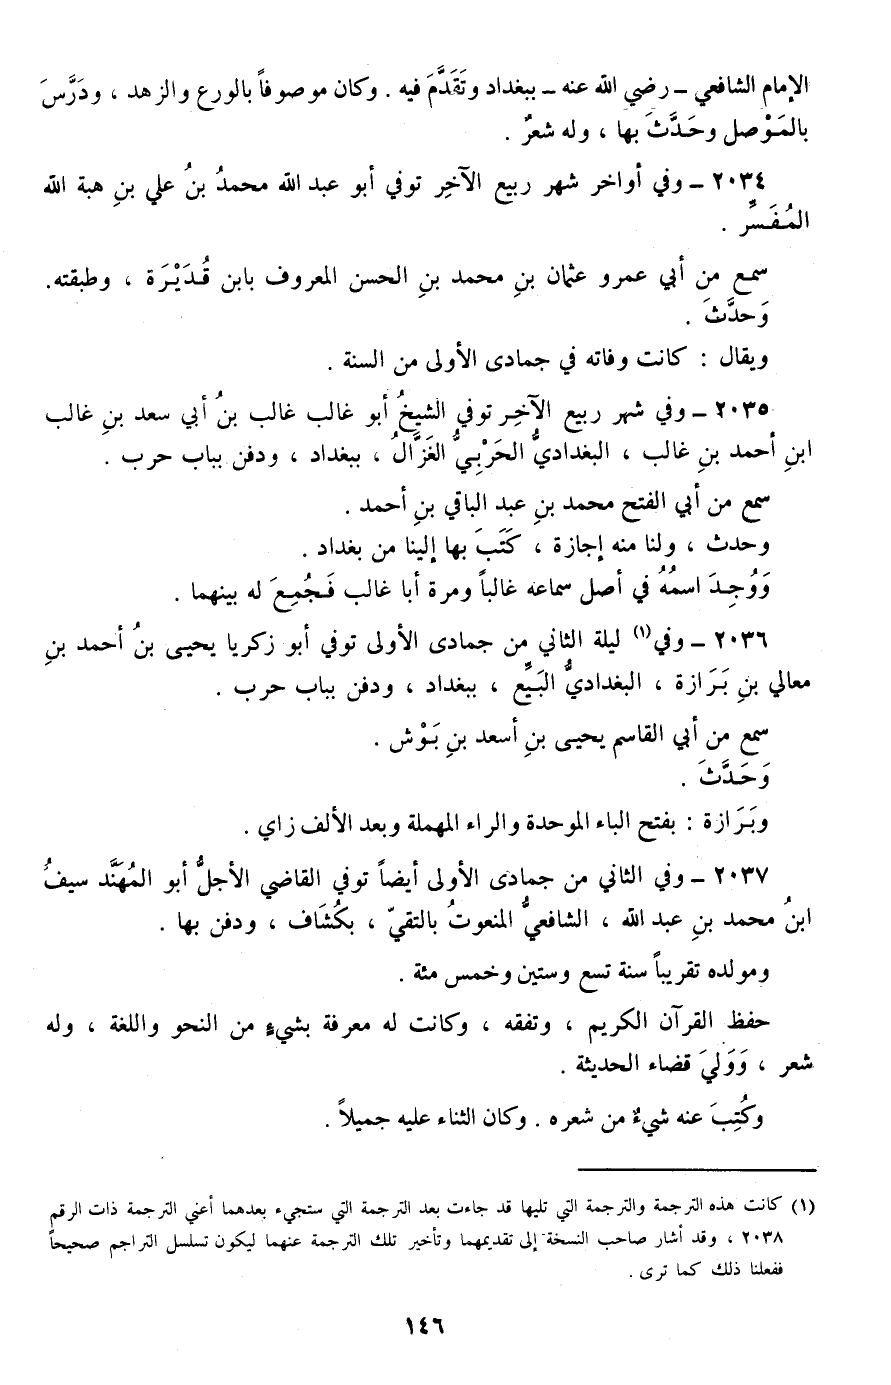 الإمام الشافعي ـ رضي الله عنه ـ ببغداد وتَقَدَّمَ فيه . وكان موصوفاً بالورع والزهد ، ودَرَّسَ
بالمَوْصل وحَدَّثَ بها ، وله شعرٌ .
٢٠٣٤ ـ وفي أواخر شهر ربيع الآخِر توفي أبو عبد الله محمدُ بنُ علي بنِ هبة الله
المُفَسِّر .
سمع من أبي عمرو عثمان بنِ محمد بنِ الحسن المعروف بابن قُدَيْرَة ، وطبقته.
وَحدَّثَ .
ويقال : كانت وفاته في جمادى الأولى من السنة .
٢٠٣٥ ـ وفي شهر ربيع الآخِر توفي الشيخُ أبو غالب غالب بنُ أبي سعد بنِ غالب
ابنِ أحمد بنِ غالب ، البغداديُّ الحَرْبيُّ الغَزَّالُ ، ببغداد ، ودفن بباب حرب .
سمع من أبي الفتح محمد بنِ عبد الباقي بنِ أحمد .
وحدث ، ولنا منه إجازة ، كَتَبَ بها إلينا من بغداد .
وَوُجِدَ اسمُهُ في أصل سماعه غالباً ومرة أبا غالب فَجُمِعَ له بينهما .
٢٠٣٦ ـ وفي(١) ليلة الثاني من جمادى الأولى توفي أبو زكريا يحيى بنُ أحمد بنِ
معالي بنِ بَرَازة ، البغداديُّ البَيِّع ، ببغداد ، ودفن بباب حرب .
سمع من أبي القاسم يحيى بنِ أسعد بنِ بَوْش .
وَحَدَّثَ .
وبَرَازة : بفتح الباء الموحدة والراء المهملة وبعد الألف زاي .
٢٠٣٧ ـ وفي الثاني من جمادى الأولى أيضاً توفي القاضي الأجلُّ أبو المُهَنَّد سيفُ
ابنُ محمد بنِ عبد الله ، الشافعيُّ المنعوتُ بالتقيّ ، بكُشَاف ، ودفن بها .
ومولده تقريباً سنة تسع وستين وخمس مئة .
حفظ القرآن الكريم ، وتفقه ، وكانت له معرفة بشيءٍ من النحو واللغة ، وله
شعر ، وَوَليَ قضاء الحديثة .
وكُتِبَ عنه شيءٌ من شعره . وكان الثناء عليه جميلاً .
(١) كانت هذه الترجمة والترجمة التي تليها قد جاءت بعد الترجمة التي ستجيء بعدهما أعني الترجمة ذات الرقم
٢٠٣٨ ، وقد أشار صاحب النسخة إلى تقديمهما وتأخير تلك الترجمة عنهما ليكون تسلسل التراجم صحيحاً
ففعلنا ذلك كما ترى .
١٤٦